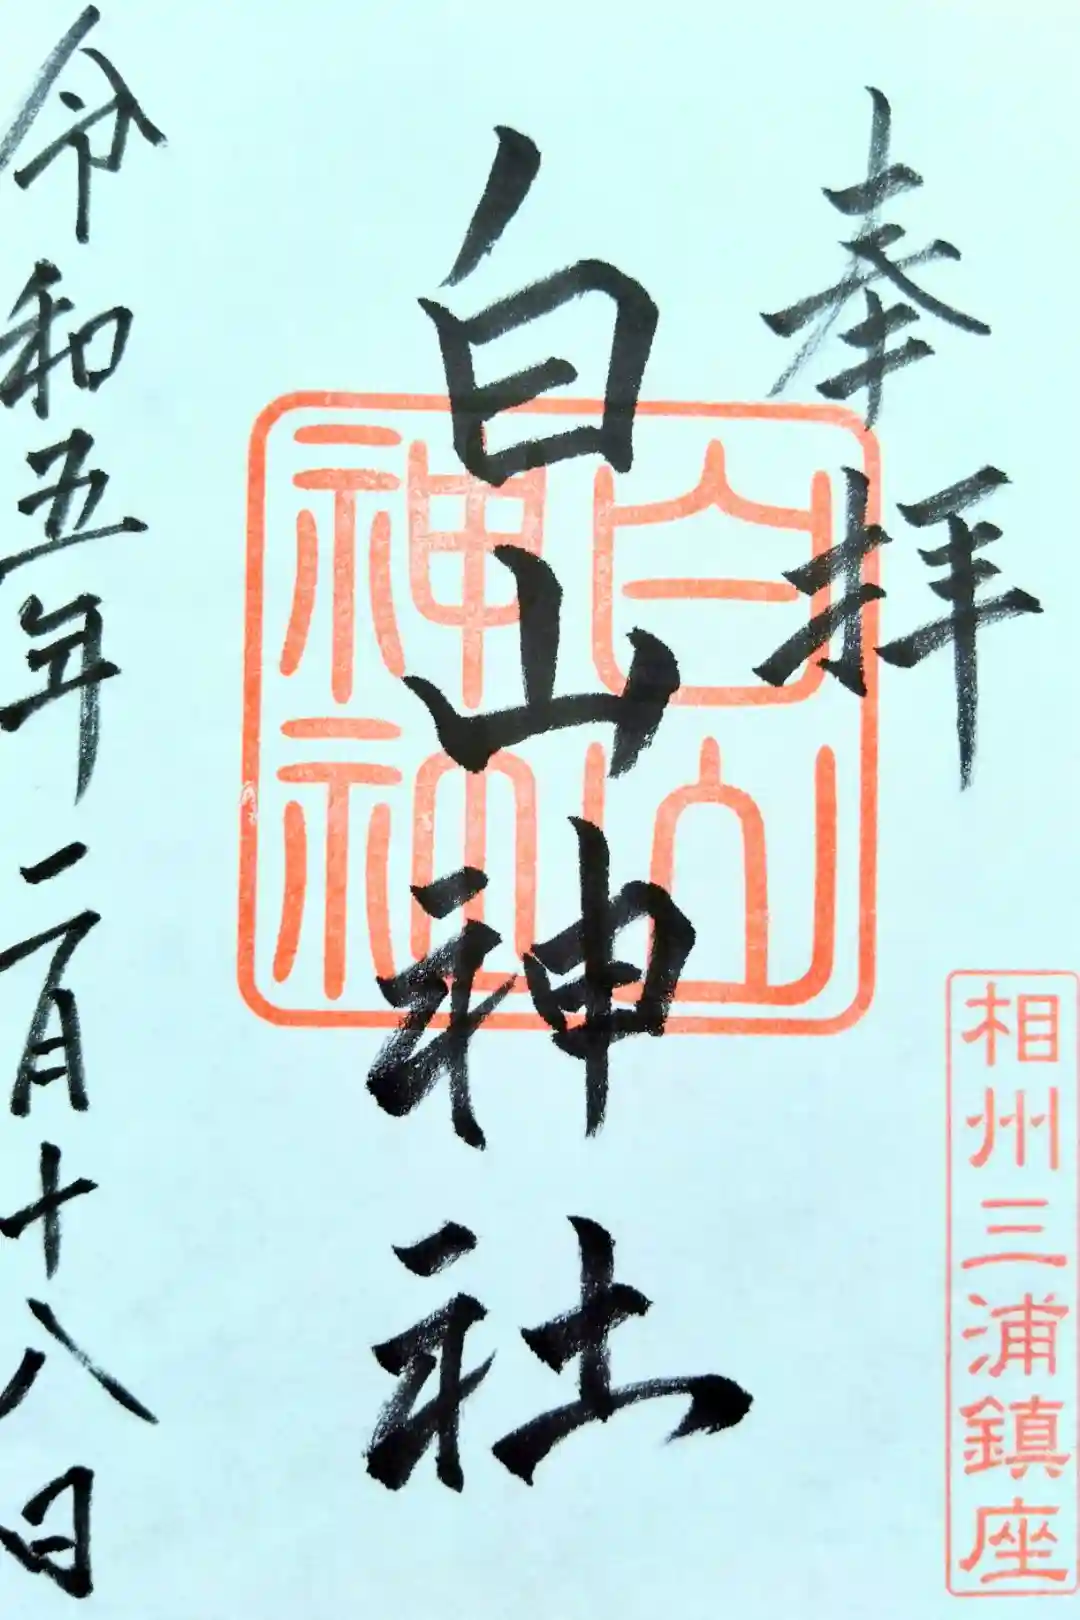 奉拝
相州三浦鎮座
白山神社
白山神社
令和五年一月十八日